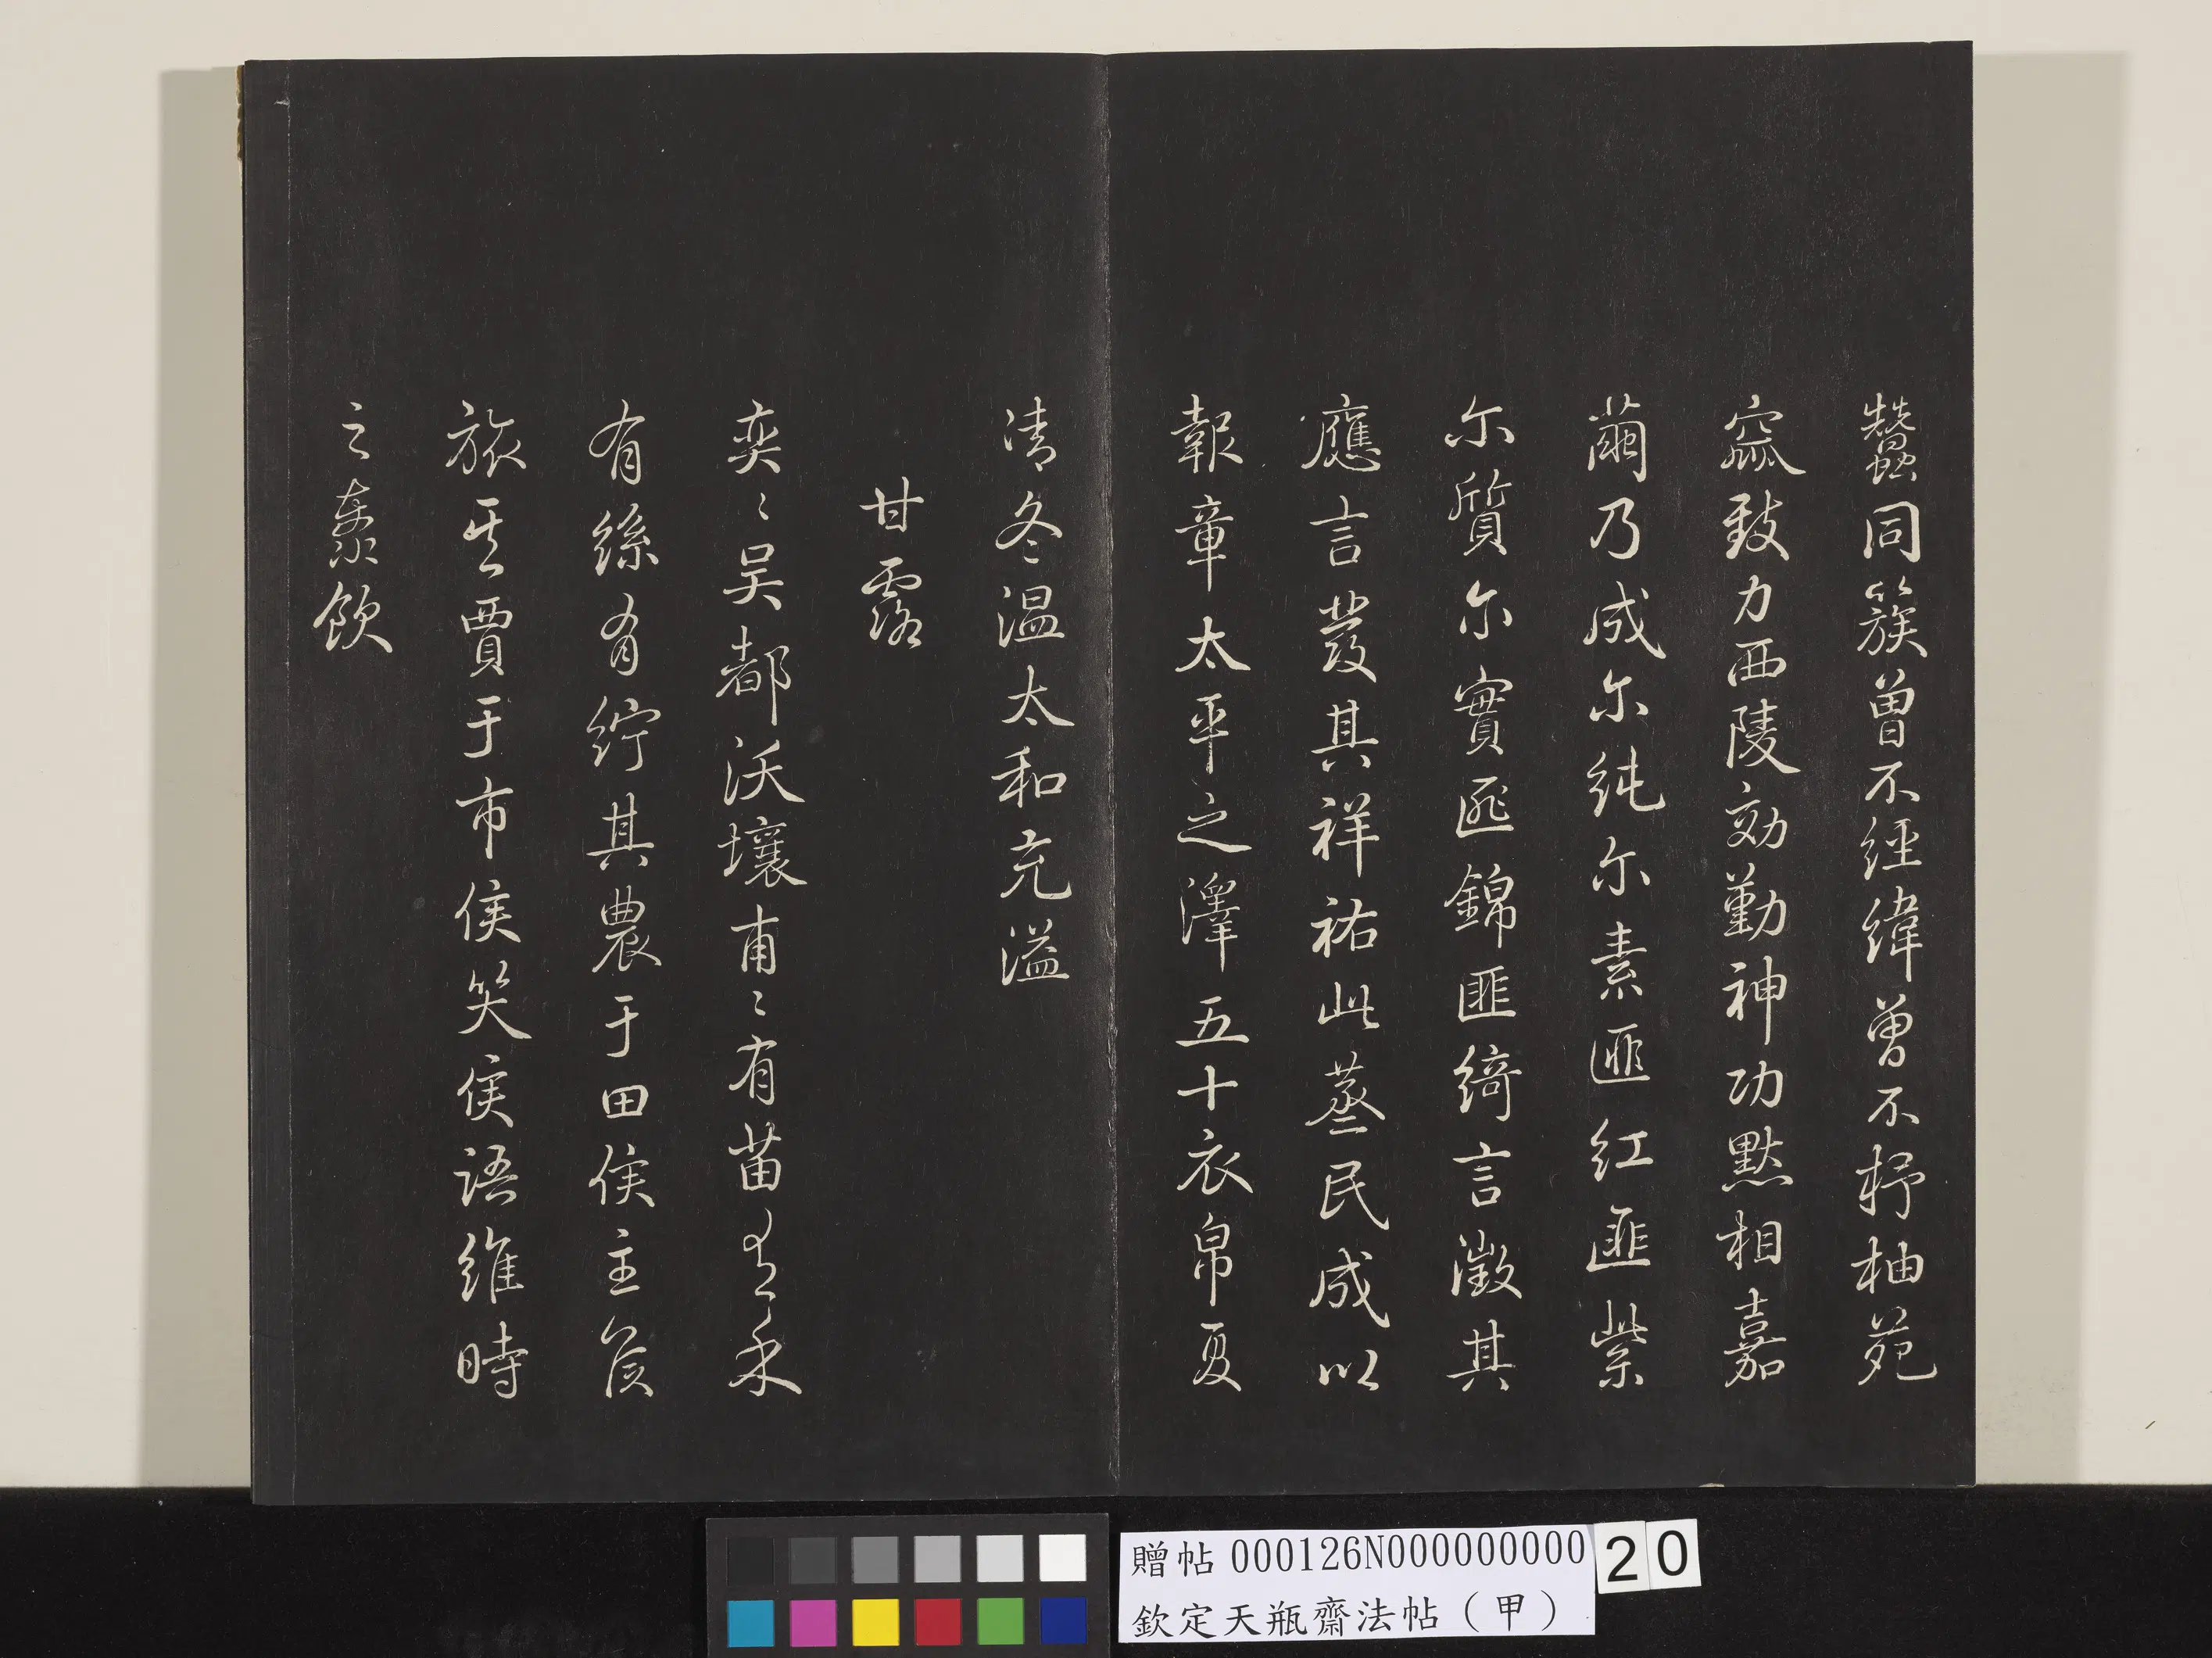 蠶同簇曾不經緯曾不杼柚苑
窳致力西陵効勤神功默相嘉
繭乃成尔純尔素匪紅匪紫
尔質尔實匪錦匪綺言徵其
應言發其祥祐此蒸民成以
報章太平之澤五十衣帛夏
清冬温太和充溢
甘露
奕〻吴都沃壤甫〻有苗有禾
有絲有紵其農于田侯主侯
旅其賈于市侯笑侯語維時
之泰飲
贈帖 000126N000000000 20
欽定天瓶齋法帖（甲）